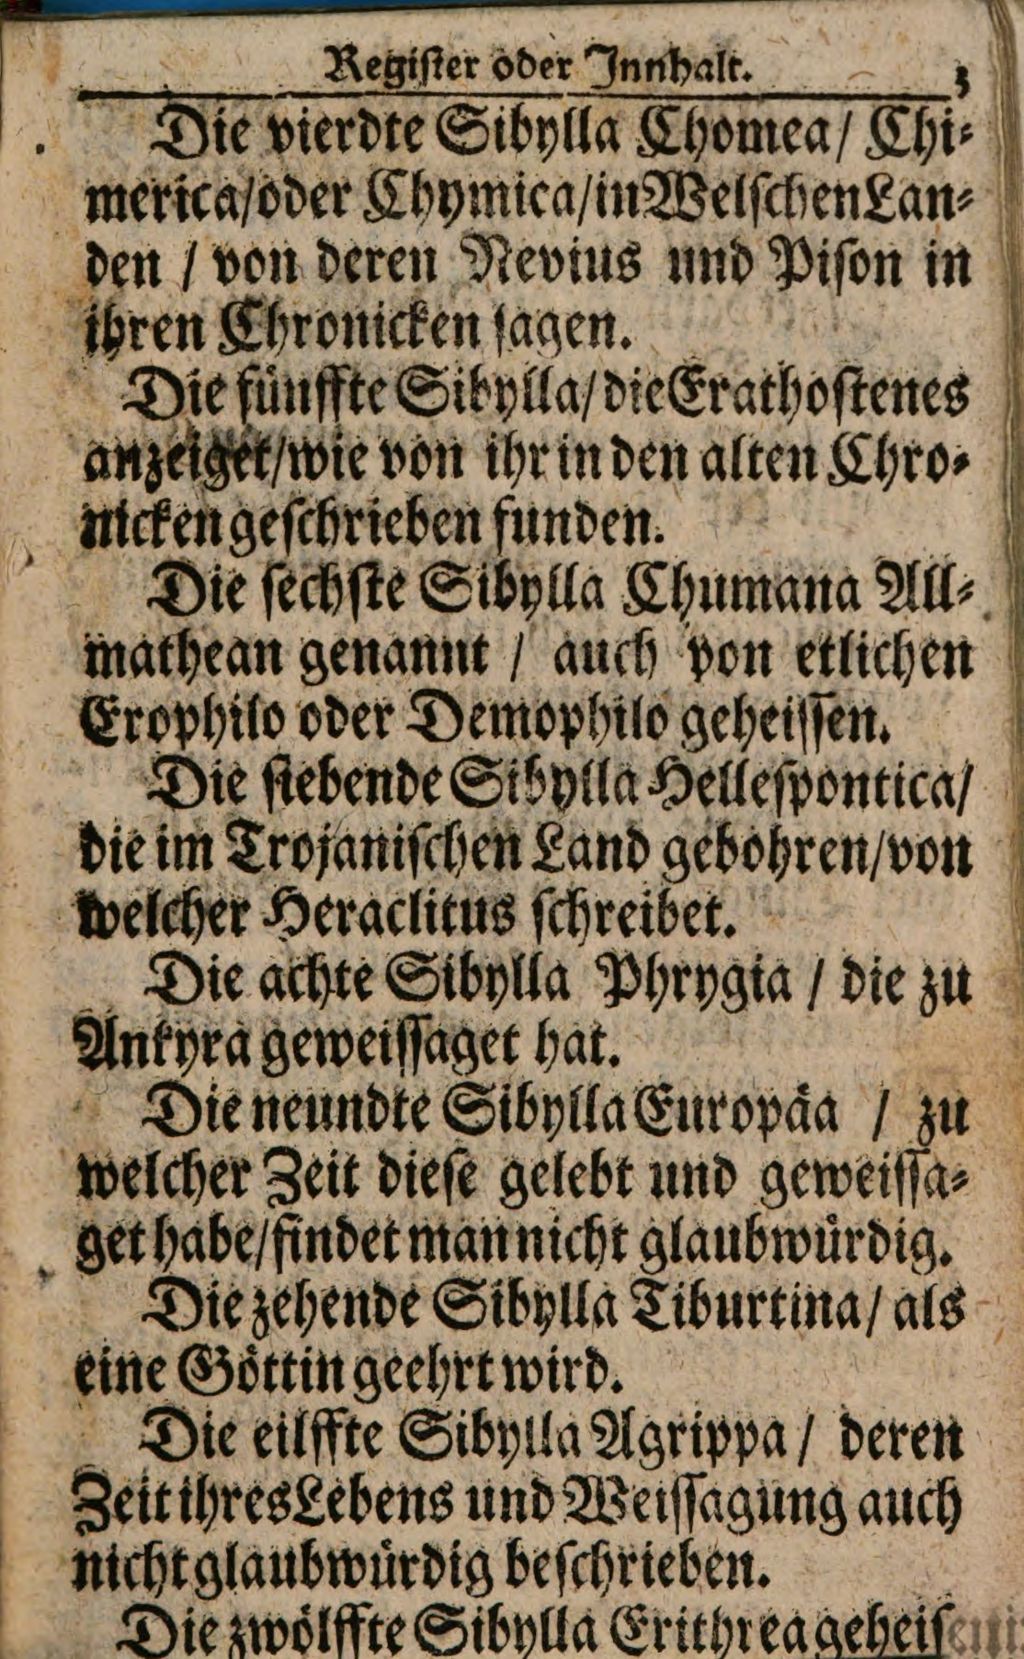 Register oder Innhalt. 3
Die vierdte Sibylla Chomea/ Chi⸗
merica/oder Chymica/in Welschen Lan⸗
den / von deren Nevius und Pison in
ihren Chronicken sagen.
Die fünffte Sibylla/ die Erathostenes
anzeiget/wie von ihr in den alten Chro⸗
nicken geschrieben funden.
Die sechste Sibylla Chumana All⸗
mathean genannt / auch von etlichen
Erophilo oder Demophilo geheissen.
Die siebende Sibylla Hellespontica/
die im Trojanischen Land gebohren/von
welcher Heraclitus schreibet.
Die achte Sibylla Phrygia / die zu
Ankyra geweissaget hat.
Die neundte Sibylla Europäa / zu
welcher Zeit diese gelebt und geweissa⸗
get habe/findet man nicht glaubwürdig.
Die zehende Sibylla Tiburtina/ als
eine Göttin geehrt wird.
Die eilffte Sibylla Agrippa / deren
Zeit ihres Lebens und Weissagung auch
nicht glaubwürdig beschrieben.
Die zwölffte Sibylla Erithrea